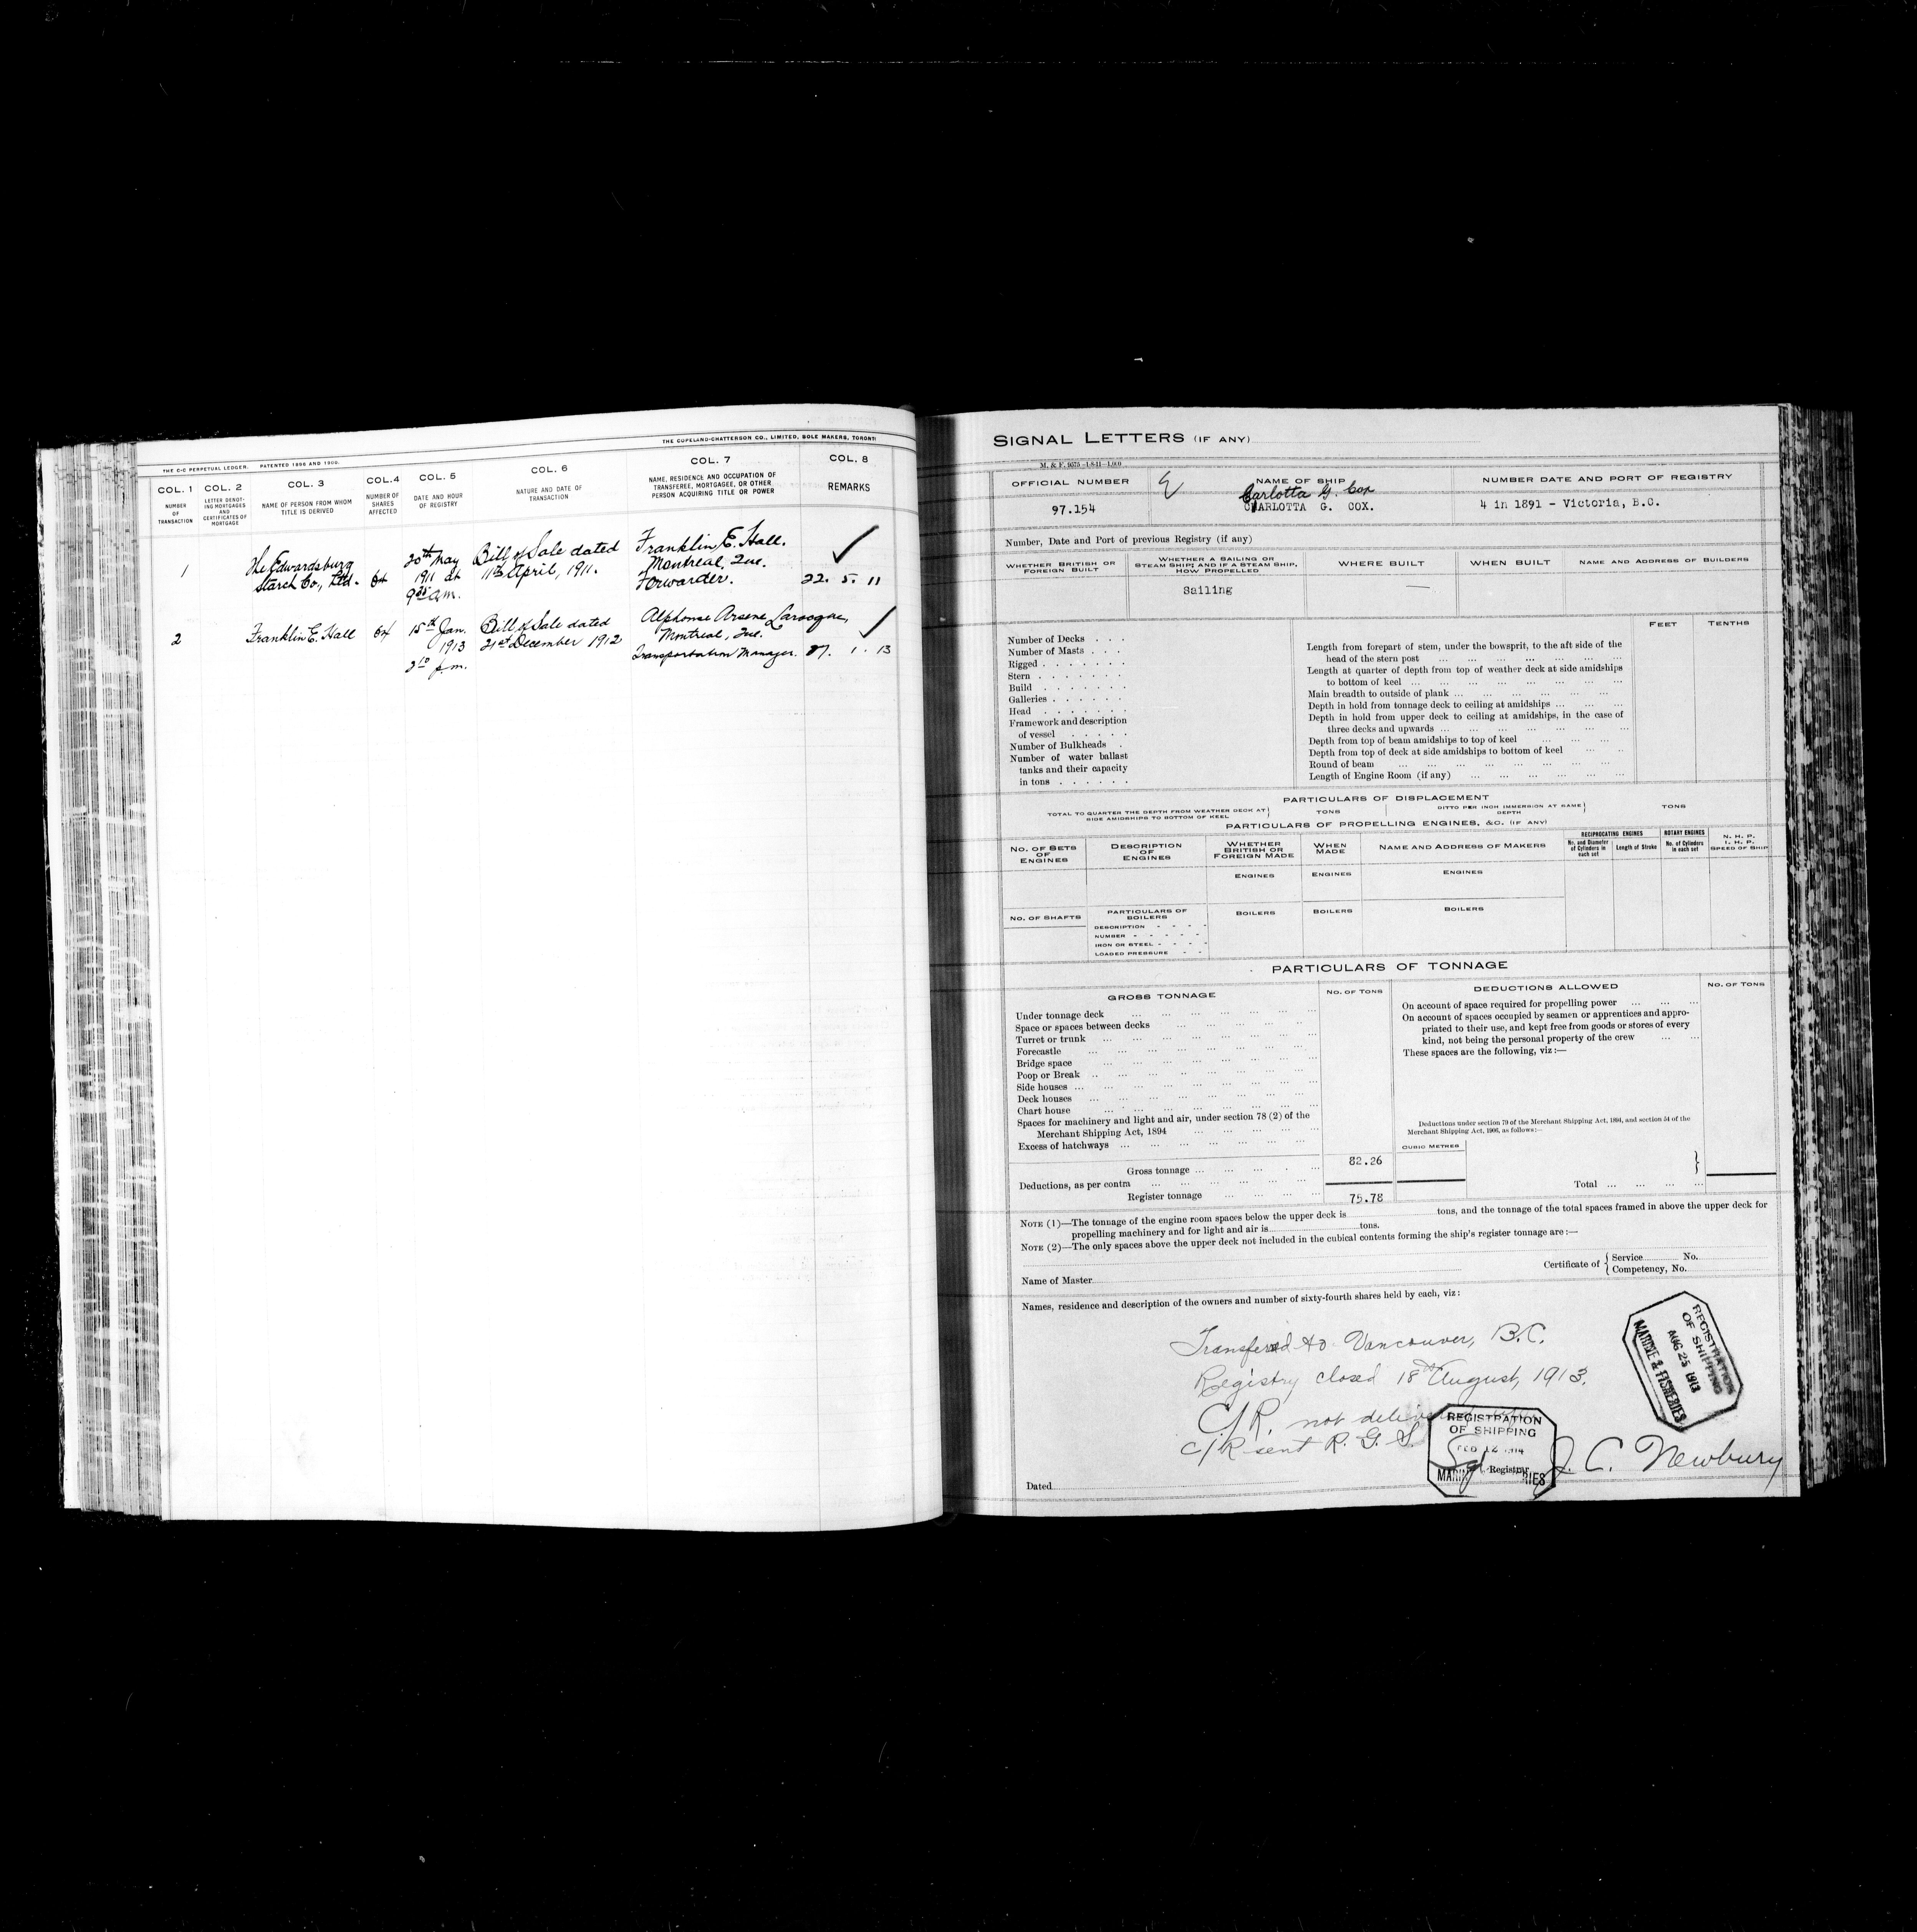 THE C-C PERPETUAL LEDGER. PATENTED 1896 AND 1900. THE COPELAND-CHATTERSON CO., LIMITED, SOLE MAKERS, TORONT
COL. 1 COL. 2 COL. 3 COL. 4 COL. 5 COL. 6 COL. 7 COL. 8
NUMBER OF TRANSACTION
LETTER DENOT-ING MORTGAGES AND CERTIFICATES OF MORTGAGE
NAME OF PERSON FROM WHOM TITLE IS DERIVED
NUMBER OF SHARES AFFECTED
DATE AND HOUR OF REGISTRY
NATURE AND DATE OF TRANSACTION
NAME, RESIDENCE AND OCCUPATION OF TRANSFEREE, MORTGAGEE, OR OTHER PERSON ACQUIRING TITLE OR POWER
REMARKS
1 The Edwardsburg Starch Co., Ltd. 64
20th May 1911 at 9 a.m.
Bill of Sale dated 11th April, 1911.
Franklin E. Hall.
Montreal, Que.
Forwarder. 22. 5. 11
2 Franklin E. Hall 64
15th Jan. 1913 2 10 p.m.
Bill of Sale dated 21st December 1912
Alphonse Arsene Larocque,
Montreal, Que.
Transportation Manager. 27. 1. 13
SIGNAL LETTERS (IF ANY)
M. & F. 9575-1-8-11-1,000
OFFICIAL NUMBER
97.154
NAME OF SHIP
Carlotta G. Cox
CARLOTTA G. COX.
NUMBER DATE AND PORT OF REGISTRY
4 in 1891 - Victoria, B.C.
Number, Date and Port of previous Registry (if any)
WHETHER BRITISH OR FOREIGN BUILT
WHETHER A SAILING OR STEAM SHIP; AND IF A STEAM SHIP, HOW PROPELLED
WHERE BUILT
WHEN BUILT
NAME AND ADDRESS OF BUILDERS
Sailing
FEET TENTHS
Number of Decks . . .
Number of Masts . . .
Rigged . . . . . . .
Stern . . . . . . .
Build . . . . . . .
Galleries . . . . . .
Head . . . . . . .
Framework and description
of vessel . . . . .
Number of Bulkheads .
Number of water ballast
tanks and their capacity
in tons . . . . .
Length from forepart of stem, under the bowsprit, to the aft side of the
head of the stern post
Length at quarter of depth from top of weather deck at side amidships
to bottom of keel
Main breadth to outside of plank
Depth in hold from tonnage deck to ceiling at amidships
Depth in hold from upper deck to ceiling at amidships, in the case of
three decks and upwards
Depth from top of beam amidships to top of keel
Depth from top of deck at side amidships to bottom of keel
Round of beam
Length of Engine Room (if any)
PARTICULARS OF DISPLACEMENT
TOTAL TO QUARTER THE DEPTH FROM WEATHER DECK AT SIDE AMIDSHIPS TO BOTTOM OF KEEL } TONS
DITTO PER INCH IMMERSION AT SAME DEPTH } TONS
PARTICULARS OF PROPELLING ENGINES, &C. (IF ANY)
NO. OF SETS OF ENGINES
DESCRIPTION OF ENGINES
WHETHER BRITISH OR FOREIGN MADE
WHEN MADE
NAME AND ADDRESS OF MAKERS
RECIPROCATING ENGINES
No. and Diameter of Cylinders in each set
Length of Stroke
ROTARY ENGINES
No. of Cylinders in each set
N. H. P.
I. H. P.
SPEED OF SHIP
ENGINES ENGINES ENGINES
NO. OF SHAFTS
PARTICULARS OF BOILERS
BOILERS BOILERS BOILERS
DESCRIPTION
NUMBER
IRON OR STEEL
LOADED PRESSURE
PARTICULARS OF TONNAGE
GROSS TONNAGE
NO. OF TONS
DEDUCTIONS ALLOWED
NO. OF TONS
Under tonnage deck
Space or spaces between decks
Turret or trunk
Forecastle
Bridge space
Poop or Break
Side houses
Deck houses
Chart house
Spaces for machinery and light and air, under section 78 (2) of the
Merchant Shipping Act, 1894
Excess of hatchways
Gross tonnage 82.26
Deductions, as per contra
Register tonnage 75.78
On account of space required for propelling power
On account of spaces occupied by seamen or apprentices and appro-
priated to their use, and kept free from goods or stores of every
kind, not being the personal property of the crew
These spaces are the following, viz:—
Deductions under section 79 of the Merchant Shipping Act, 1894, and section 54 of the
Merchant Shipping Act, 1906, as follows:—
CUBIC METRES
Total
NOTE (1)—The tonnage of the engine room spaces below the upper deck is tons, and the tonnage of the total spaces framed in above the upper deck for
propelling machinery and for light and air is tons.
NOTE (2)—The only spaces above the upper deck not included in the cubical contents forming the ship's register tonnage are:—
Name of Master
Certificate of { Service No.
Competency, No.
Names, residence and description of the owners and number of sixty-fourth shares held by each, viz:
Transferred to Vancouver, B.C.
Registry closed 18th August, 1913.
C/R. not
C/R sent R. G. S.
REGISTRATION OF SHIPPING
AUG 25 1913
MARINE & FISHERIES
REGISTRATION OF SHIPPING
FEB 12 1914
Dated
Sgd. Registrar J. C. Newbury